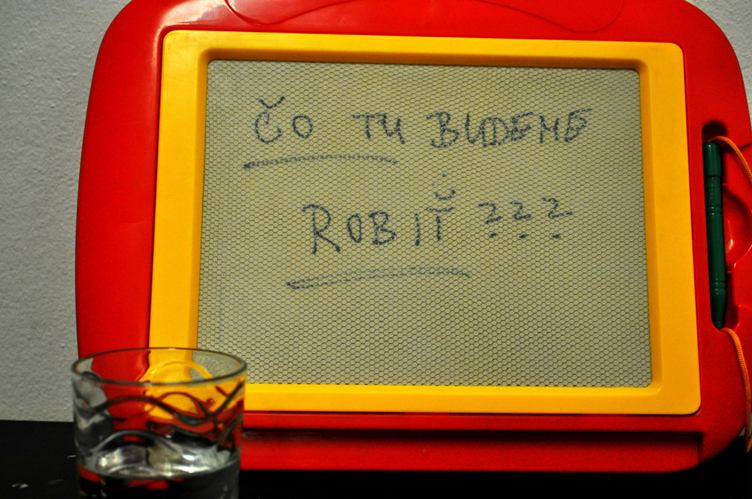 ČO TU BUDEME
ROBIŤ ???